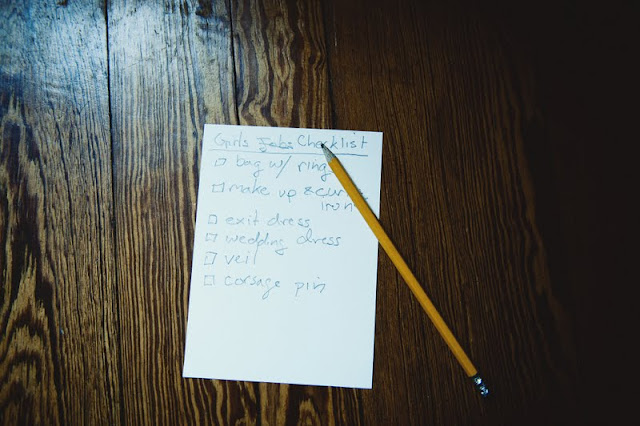 Girls Jobs Checklist
□ bag w/ rings
□ make up & curling
iron
□ exit dress
□ wedding dress
□ veil
□ corsage pin